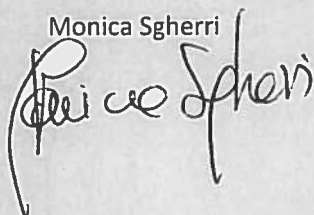 Monica Sgherri
Monica Sgherri